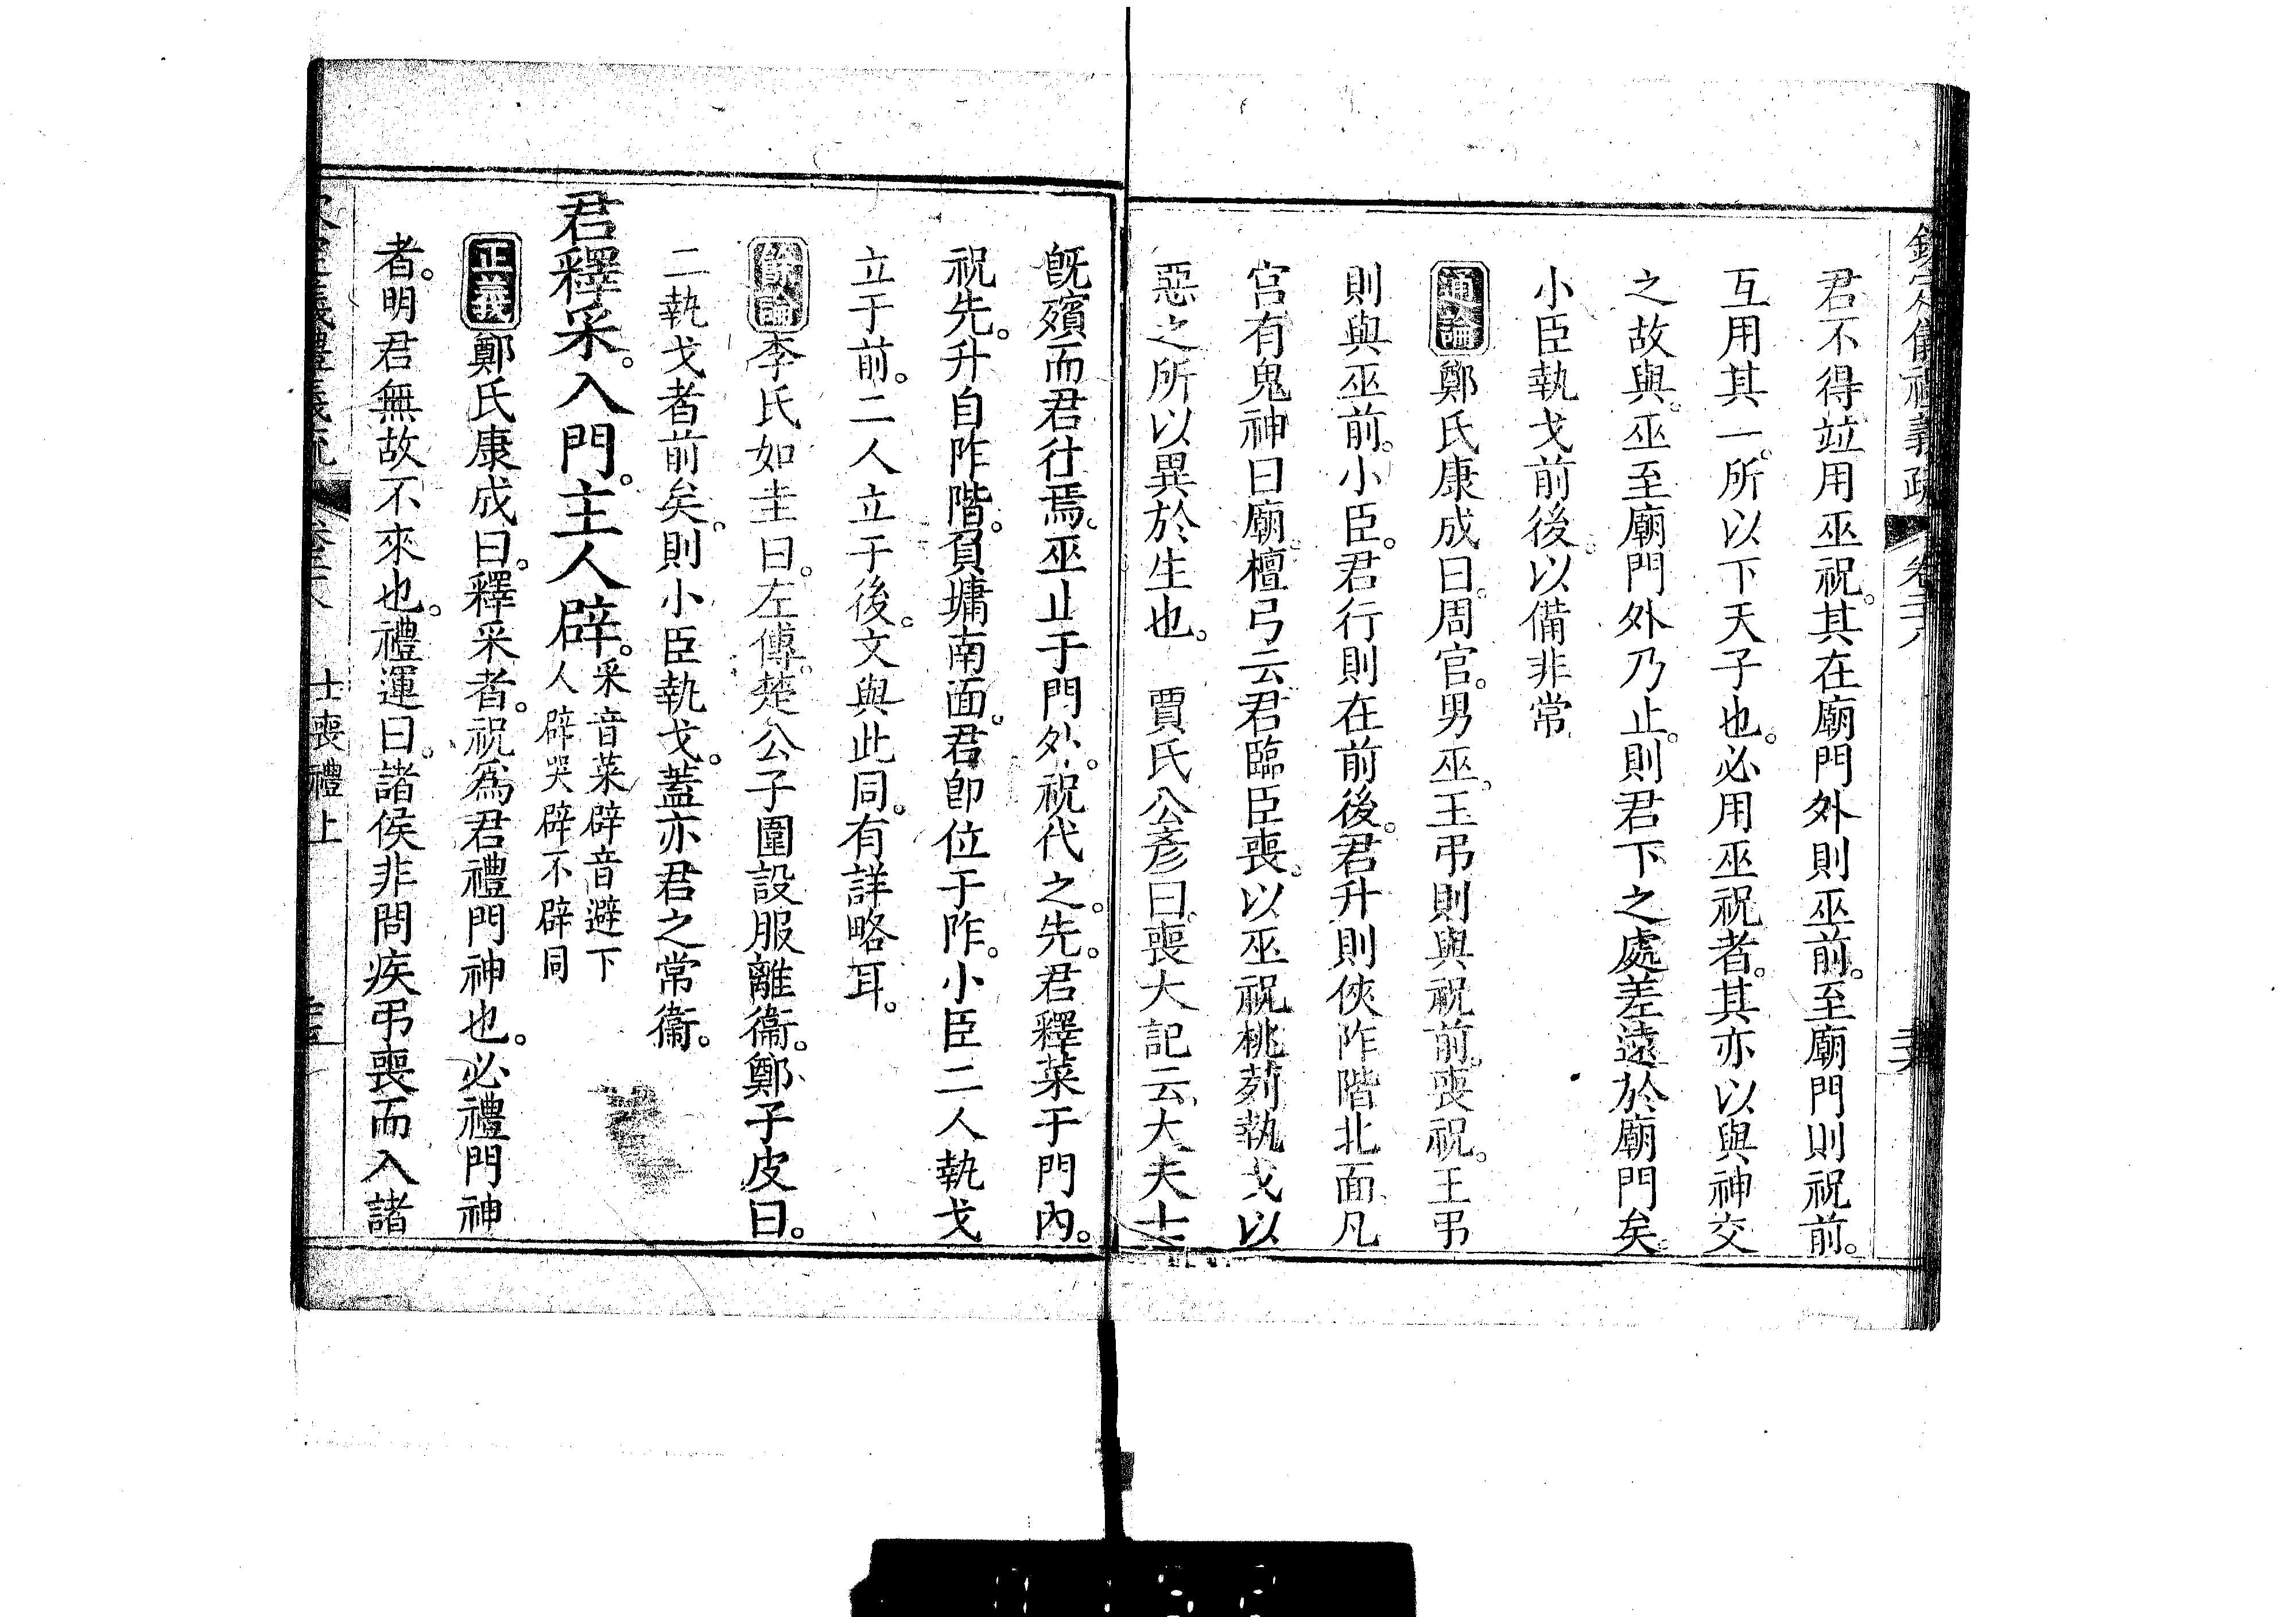 欽定儀禮義疏 卷二十八
君不得竝用巫祝。其在廟門外則巫前。至廟門則祝前。
互用其一。所以下天子也。必用巫祝者。其亦以與神交
之故與。巫至廟門外乃止。則君下之處差遠於廟門矣
小臣執戈前後。以備非常
通論鄭氏康成曰。周官。男巫。王弔則與祝前。喪祝。王弔
則與巫前。小臣。君行則在前後。君升則俠阼階北面凡
宮有鬼神曰廟。檀弓云君臨臣喪。以巫祝桃茢執戈以
惡之所以異於生也。 賈氏公彥曰。喪大記云大夫士
旣殯而君往焉。巫止于門外。祝代之。先。君釋菜于門內。
祝先。升自阼階。負墉南面。君卽位于阼。小臣二人執戈
立于前。二人立于後。文與此同。有詳略耳。
餘論李氏如圭曰。左傳。楚公子圍設服離衞。鄭子皮曰。
二執戈者前矣。則小臣執戈。蓋亦君之常衞。
君釋采。入門。主人辟。采音菜辟音避下
人辟哭辟不辟同
正義鄭氏康成曰。釋采者。祝爲君禮門神也。必禮門神
者。明君無故不來也。禮運曰。諸侯非問疾弔喪而入諸
士喪禮上